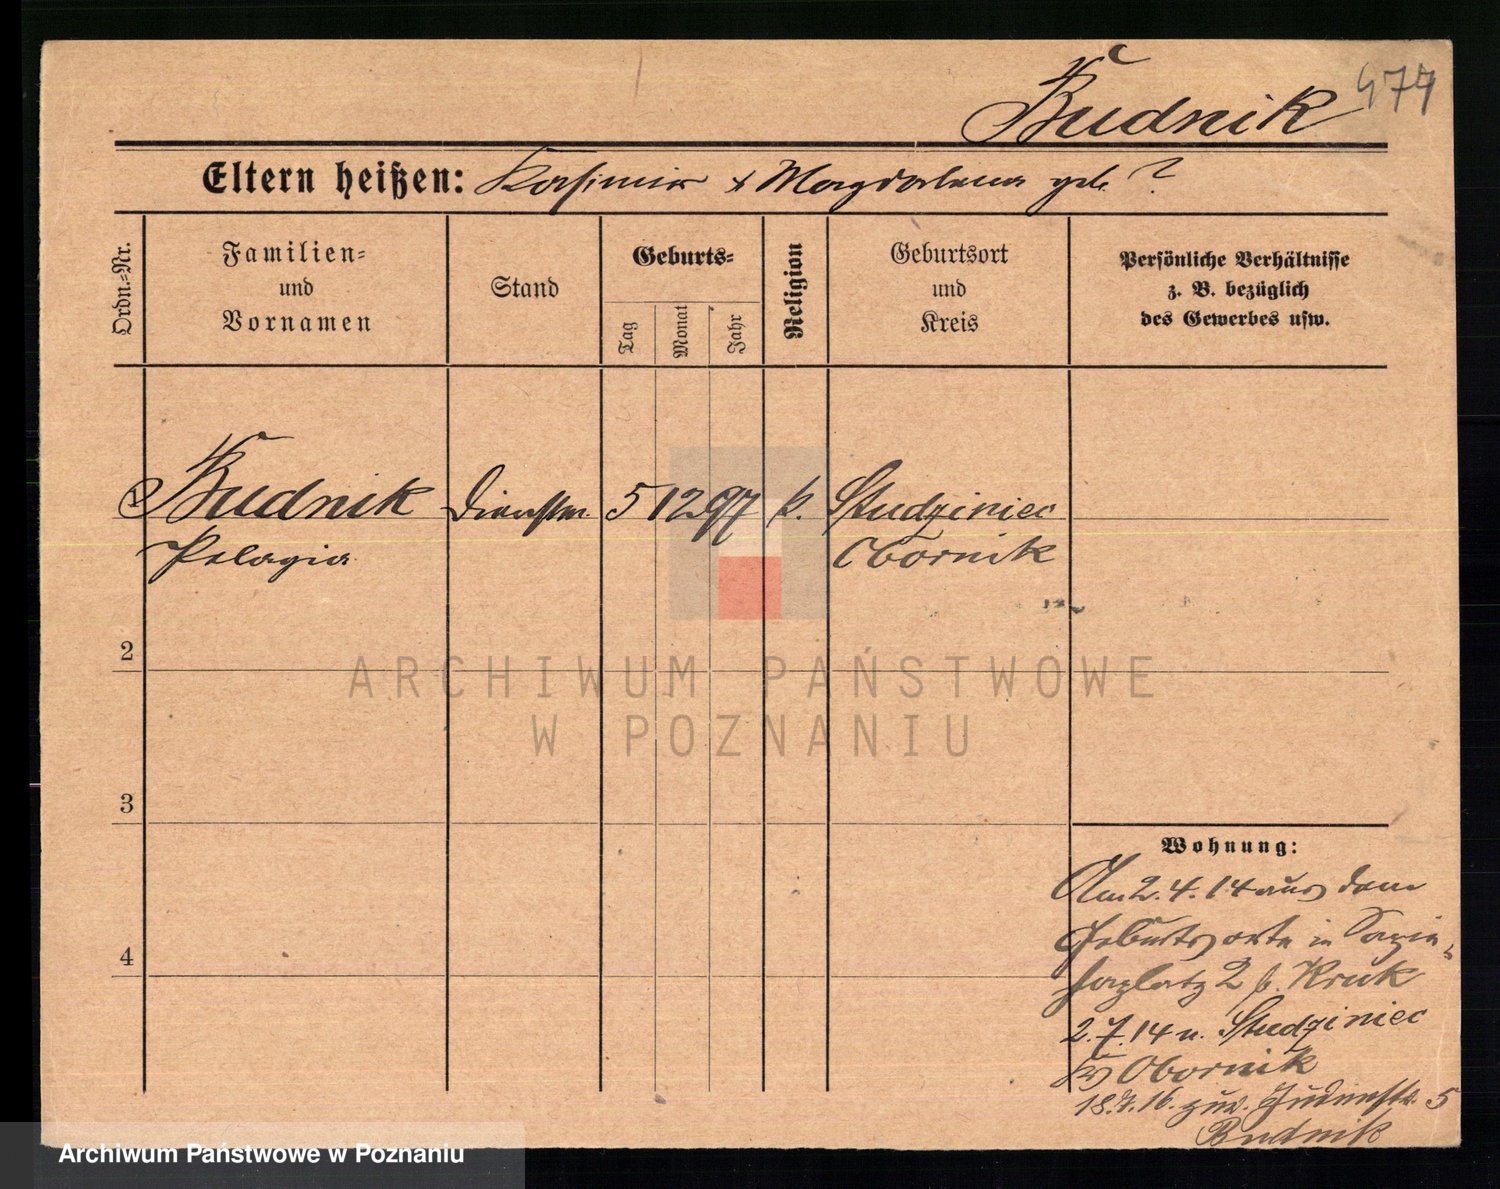 Budnik
474
Eltern heißen: Kasimir & Magdalena geb. ?
Ordn.-Nr.
Familien-
und
Vornamen
Stand
Geburts-
Tag
Monat
Jahr
Religion
Geburtsort
und
Kreis
Persönliche Verhältnisse
z. B. bezüglich
des Gewerbes usw.
1 Budnik Dienstm. 5 12 97 k. Studziniec
Pelagia Obornik
2
3
4
ARCHIWUM PAŃSTWOWE
W POZNANIU
Wohnung:
Am 2.4.14 aus dem
Geburtsorte in Sapie-
haplatz 2 b. Kruk
2.7.14 n. Studziniec
Kr Obornik
18.7.16. zur. 5
Budnik
Archiwum Państwowe w Poznaniu